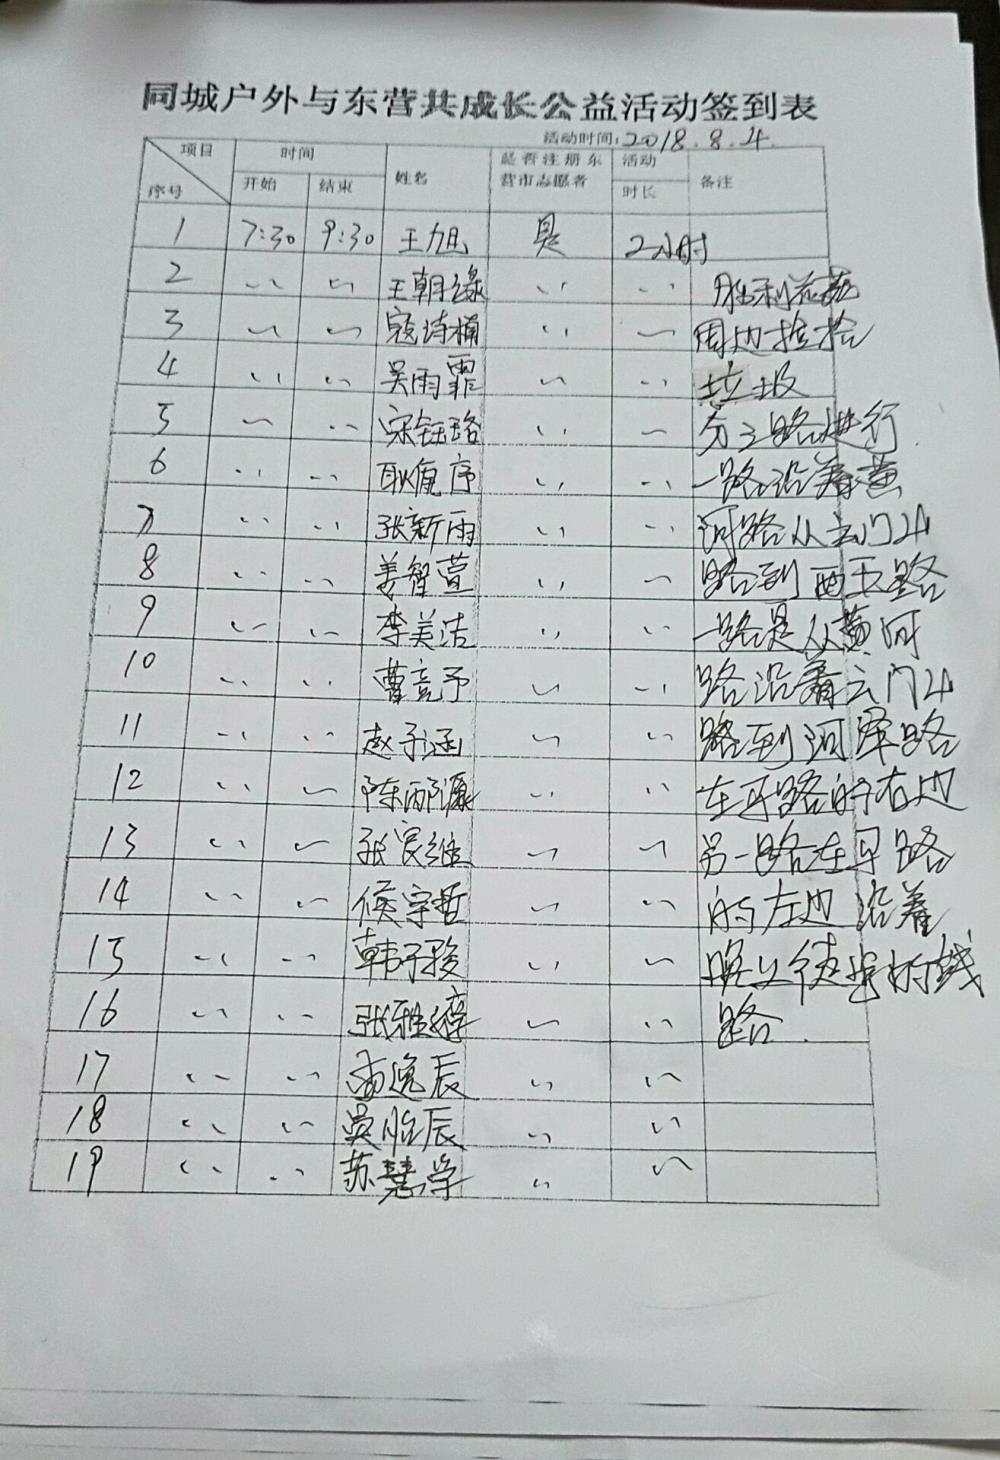 同城户外与东营共成长公益活动签到表
活动时间：2018.8.4.
项目 序号 时间 开始 结束 姓名 是否注册东营市志愿者 活动时长 备注
1 7:30 9:30 王旭 是 2小时
2 〃 〃 王朝缘 〃 〃 胜利花苑
3 〃 〃 寇诗楠 〃 〃 周边捡拾
4 〃 〃 吴雨霏 〃 〃 垃圾
5 〃 〃 宋钰珞 〃 〃 分三路进行.
6 〃 〃 耿 序 〃 〃 一路沿着黄
7 〃 〃 张新雨 〃 〃 河路从云门山
8 〃 〃 姜智萱 〃 〃 路到西五路
9 〃 〃 李美洁 〃 〃 一路是从黄河
10 〃 〃 曹竞予 〃 〃 路沿着云门山
11 〃 〃 赵子涵 〃 〃 路到菏泽路
12 〃 〃 陈 源 〃 〃 在马路的右边
13 〃 〃 张 维 〃 〃 另一路在马路
14 〃 〃 侯宇哲 〃 〃 的左边沿着
15 〃 〃 韩子 〃 〃 晚上徒步的线
16 〃 〃 张雅 〃 〃 路.
17 〃 〃 逸辰 〃 〃
18 〃 〃 吴 辰 〃 〃
19 〃 〃 苏慧 〃 〃